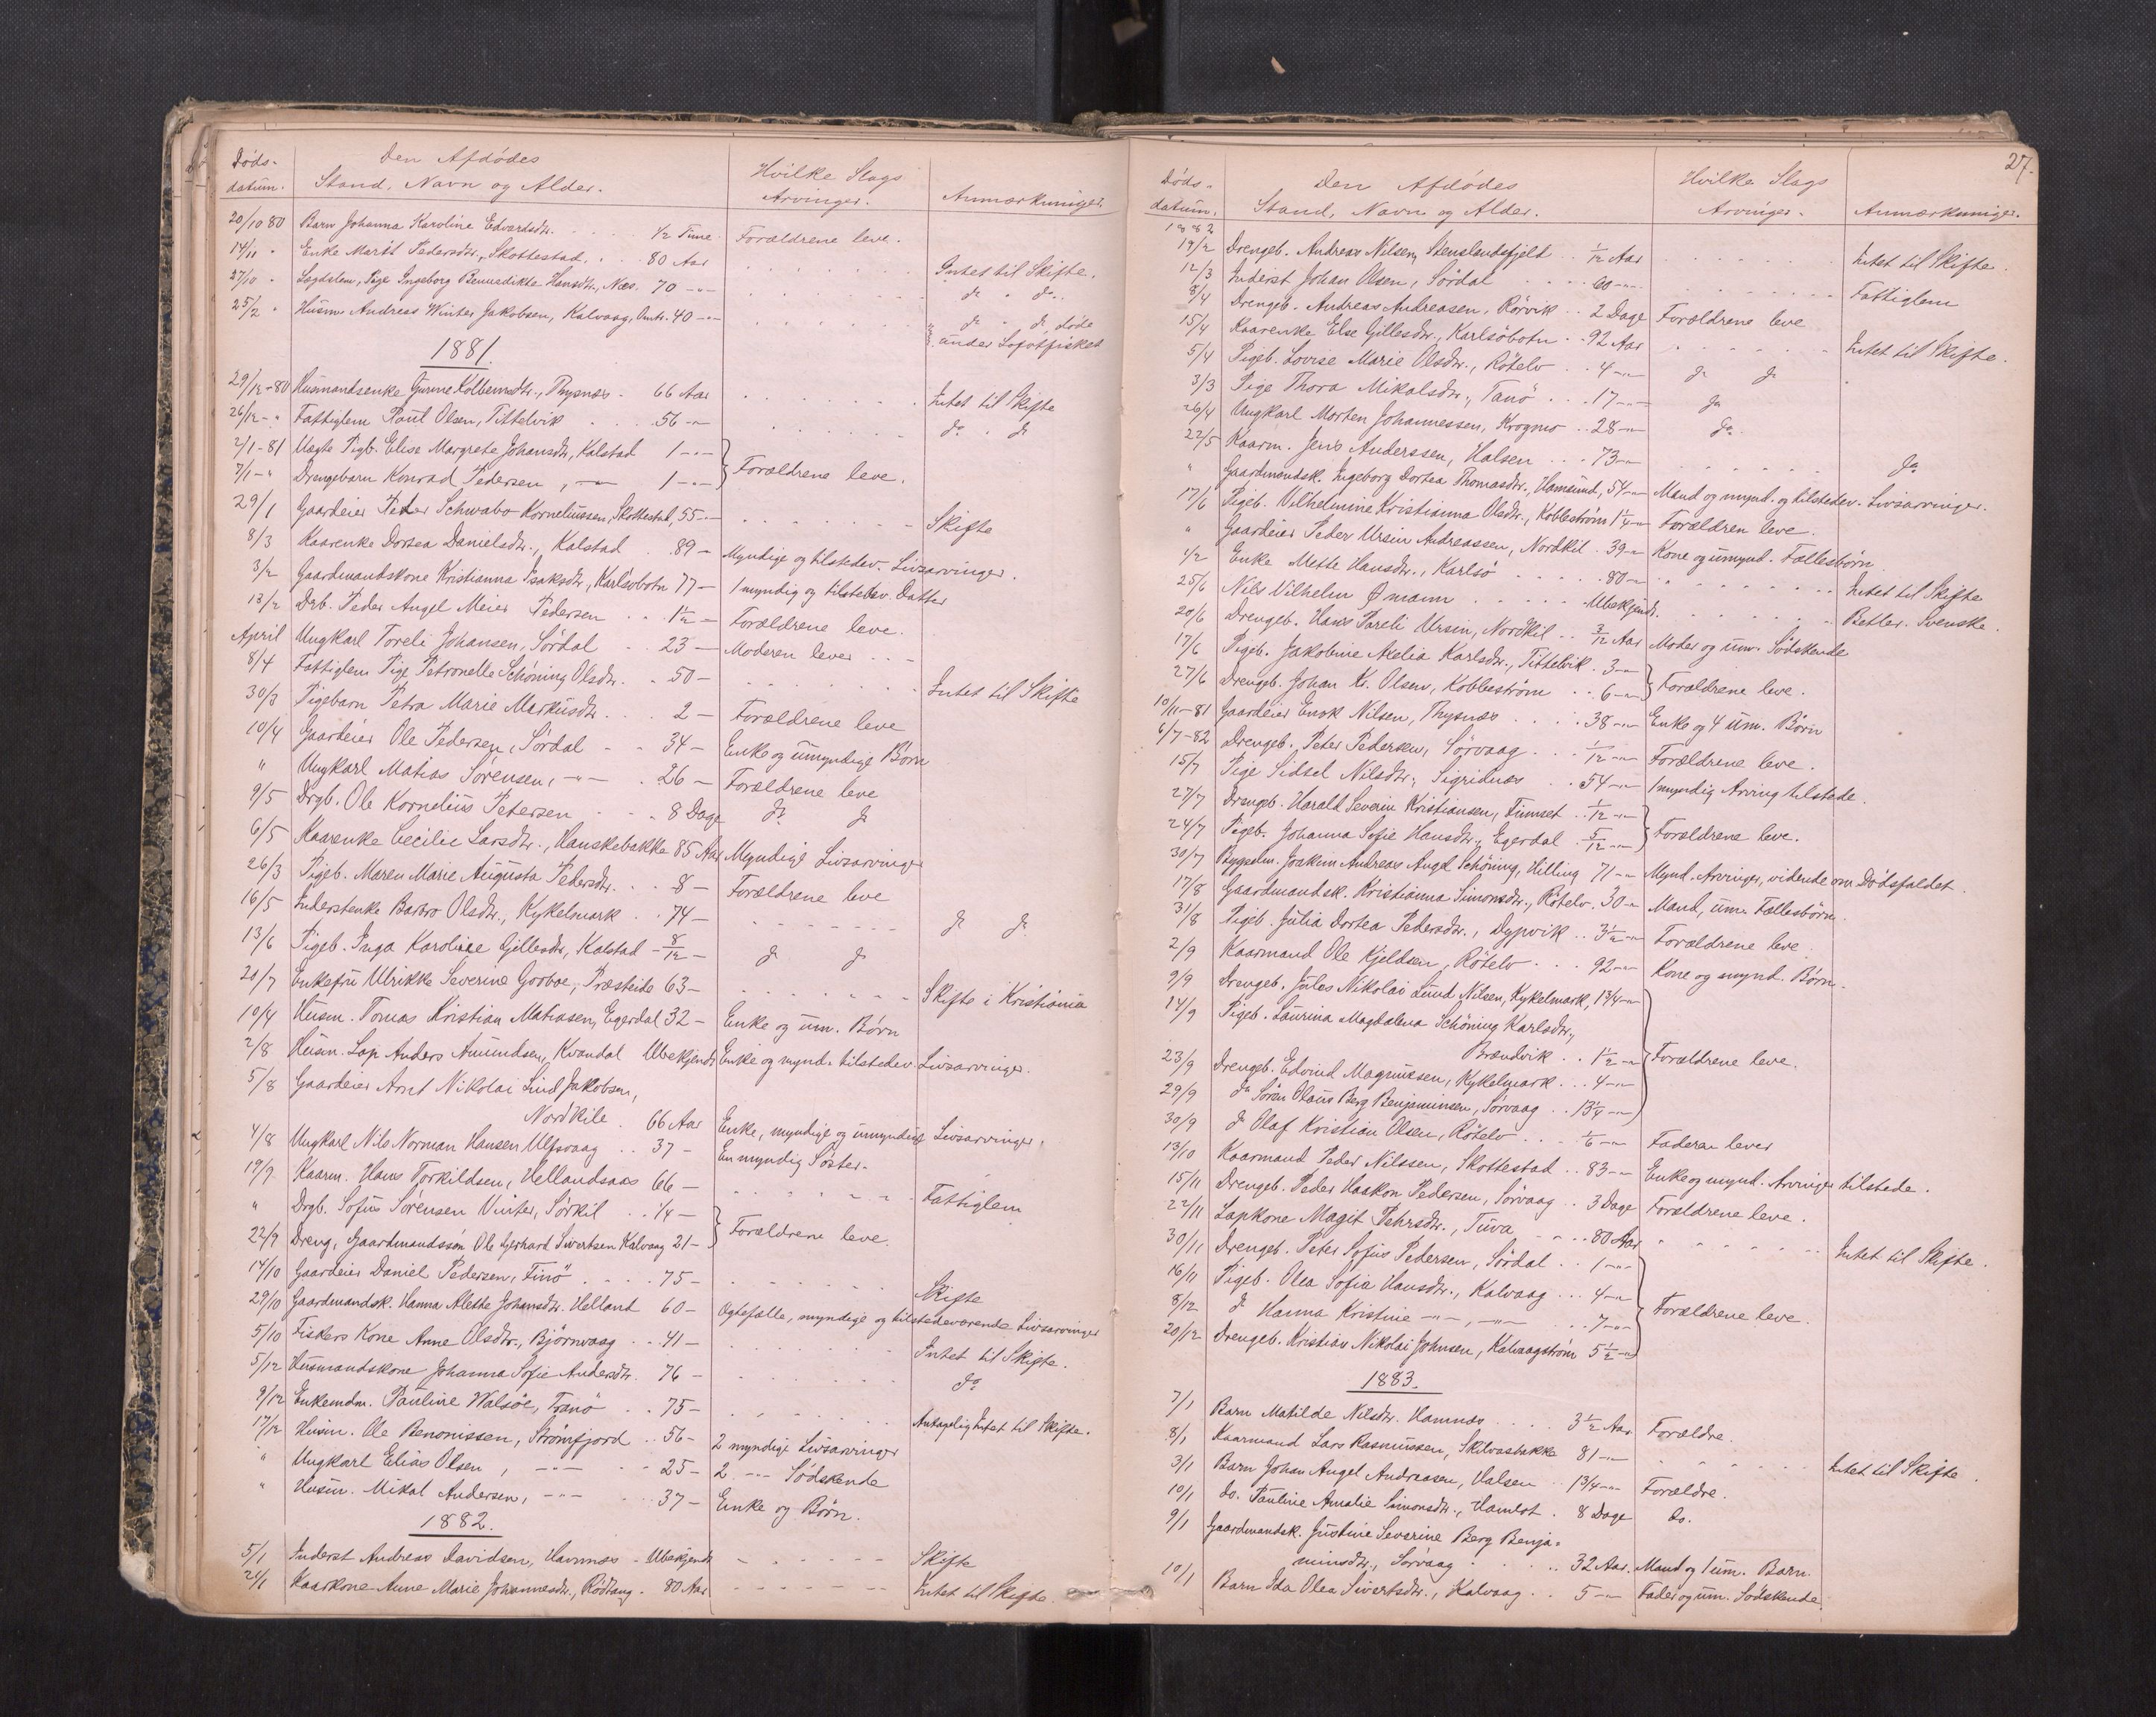 Døds-
datum.
Den Afdødes
Stand, Navn og Alder.
Hvilke Slags
Arvinger.
Anmærkninger.
20/10 80 Barn Johanna Karoline Edvardsdtr. 1/2 Time Forældrene leve.
14/11 " Enke Marit Pedersdtr., Skottestad. 80 Aar Intet til Skifte.
27/10 " Lægdslem, Pige Ingeborg Bennedikte Hansdtr., Næs. 70 -"- do " do.
25/2 " Husm. Andreas Winter Jakobsen, Kalvaag, 40 -"- do " do, døde
under Lofotfisket
1881.
29/12-80 Husmandsenke Kolbensdtr., Thysnæs - 66 Aar Intet til Skifte
26/12-" Fattiglem Poul Olsen, Tittelvik 56 -"- do " do
2/1-81 Uægte Pigb. Elise Margrete Johansdtr., Kalstad 1 -"-
7/1-" Drengebarn Konrad Pedersen, -"- 1 -"- Forældrene leve.
29/1 Gaardeier Peder Schwabo Korneliussen, Skottestad, 55 -"- Skifte
8/3 Kaarenke Dortea Danielsdtr., Kalstad 89 - Myndige og tilstedev. Livsarvinger.
3/2 Gaardmandskone Kristianna Isaksdtr., Karlsøbotn 77 - 1 myndig og tilstedev. Datter
13/2 Drb. Peder Angel Meier Pedersen 1 1/2 - Forældrene leve.
April Ungkarl Toreli Johansen, Sørdal 23 - Moderen lever
8/4 Fattiglem Pige Petronelle Schøning Olsdtr. 50 - Intet til Skifte
30/3 Pigebarn Petra Marie Markusdtr. 2 - Forældrene leve
10/4 Gaardeier Ole Pedersen, Sørdal 34 - Enke og umyndige Børn
" Ungkarl Matias Sørensen, -"- 26 - Forældrene leve
9/5 Drgb. Ole Kornelius Petersen 8 Dage do do
6/5 Kaarenke Cecilie Larsdtr., Hanskebakke 85 Aar Myndige Livsarvinger
26/3 Pigeb. Maren Marie Augusta Pedersdtr. 8 - Forældrene leve
16/5 Inderstenke Barbro Olsdtr., Kykelmark 74 - do do
13/6 Pigeb. Inga Karoline Gillesdtr., Kalstad 8/12 - do do
20/7 Enkefru Ulrikke Severine Gooboe, Præsteide 63 - Skifte i Kristiania
10/4 Husm. Tomas Kristian Matiasen, Egerdal 32 - Enke og um. Børn
2/8 Husm. Lap Anders Amundsen, Kvandal Ubekjendt Enke og mynd. tilstedev. Livsarvinger.
5/8 Gaardeier Arnt Nikolai Lind Jakobsen,
Nordkile 66 Aar Enke, myndige og umyndige Livsarvinger.
4/8 Ungkarl Nils Norman Hansen Ulfsvaag 37 - En myndig Søster.
19/9 Kaarm. Hans Torkildsen, Hellandsaas 66 - Fattiglem
" Drgb. Sofus Sørensen Vinter, Sørkil 1/4 -
22/9 Dreng, Gaardmandssøn Ole Gerhard Sivertsen Kalvaag 21 - Forældrene leve.
14/10 Gaardeier Daniel Pedersen, Finø 75 - Skifte
29/10 Gaardmandsk. Hanna Alethe Johansdtr. Helland 60 - Ægtefælle, myndige og tilstedeværende Livsarvinger
5/10 Fiskers Kone Anne Olsdtr., Bjørnvaag 41 - Intet til Skifte.
5/12 Husmandskone Johanna Sofie Andersdtr. 76 - do
9/12 Enkemdm. Pauline Walsøe, Tranø 75 - Antagelig Intet til Skifte.
17/12 Husm. Ole Benonissen, Strømfjord 56 - 2 myndige Livsarvinger
" Ungkarl Elias Olsen, -"- 25 - 2 -"- Sødskende
" Husm. Mikal Andersen, -"- 37 - Enke og Børn.
1882.
5/1 Inderst Andreas Davidsen, Havnnæs - Ubekjendt Skifte
24/1 Kaarkone Anne Marie Johannesdtr., Rødtang 80 Aar Intet til Skifte.
27.
Døds-
datum.
Den Afdødes
Stand, Navn og Alder.
Hvilke Slags
Arvinger.
Anmærkninger.
1882
19/2 Drengeb. Andreas Nilsen, Stenslandsfjeld 1/12 Aar Intet til Skifte.
12/3 Inderst Johan Olsen, Sørdal 60 -"- Fattiglem
8/4 Drengeb. Andreas Andreasen, Rørvik 2 Dage Forældrene leve
15/4 Kaarenke Else Gillesdtr., Karlsøbotn 92 Aar Intet til Skifte.
5/4 Pigeb. Lovise Marie Olsdtr., Røtelv 4 -"- do do
3/3 Pige Thora Mikalsdtr., Tanø 17 -"- do
26/4 Ungkarl Morten Johannessen, Krogmo 28 -"- do
22/5 Kaarm. Jens Anderssen, Halsen 73 -"- do
" Gaardmandsk. Ingeborg Dortea Thomasdtr., Hamsund, 54 -"- Mand og mynd. og tilstedev. Livsarvinger.
17/6 Pigeb. Vilhelmine Kristianna Olsdtr., Kobbestrøm 1 1/4 -"- Forældren leve.
" Gaardeier Peder Ursin Andreassen, Nordkil 39 -"- Kone og umynd. Fællesbørn
4/2 Enke Mette Hansdtr., Karlsø 80 -"- Intet til Skifte
25/6 Nils Vilhelm Ømann Ubekjendt. Betler. Svenske.
20/6 Drengeb. Hans Pareli Ursin, Nordkil 3/12 Aar Moder og um. Sødskende
17/6 Pigeb. Jakobine Axelia Karlsdtr., Tittelvik 3 -"-
27/6 Drengeb. Johan Kr. Olsen, Kobbestrøm 6 -"- Forældrene leve.
10/11-81 Gaardeier Enok Nilsen, Thysnæs 38 -"- Enke og 4 um. Børn
6/7-82 Drengeb. Peter Pedersen, Sørvaag 1/12 -"- Forældrene leve.
15/7 Pige Sidsel Nilsdtr., Sigridnæs 54 -"- 1 myndig Arving tilstede.
27/7 Drengeb. Harald Severin Kristiansen, Finnset 1/12 -"-
24/7 Pigeb. Johanna Sofie Hansdtr., Egerdal 5/12 -"- Forældrene leve.
30/7 Bygselm. Joakim Andreas Angel Schøning, Hilling 71 -"- Mynd. Arvinger, vidende om Dødsfaldet.
17/8 Gaardmandsk. Kristianna Simonsdtr., Røtelv 30 -"- Mand, um. Fællesbørn.
31/8 Pigeb. Julia Dortea Pedersdtr., Dypvik 3 1/2 -"- Forældrene leve.
2/9 Kaarmand Ole Kjeldsen, Røtelv 92 -"- Kone og mynd. Børn.
9/9 Drengeb. Jules Nikolai Lund Nilsen, Kykelmark, 1 3/4 -"-
14/9 Pigeb. Laurina Magdalena Schöning Karlsdtr.,
Brændvik 1 1/2 -"- Forældrene leve.
23/9 Drengeb. Edvind Magnussen, Kykelmark 4 -"-
29/9 do Søren Olaus Berg Benjaminsen, Sørvaag 13/4 -"-
30/9 do Olaf Kristian Olsen, Røtelv 1/6 -"- Faderen lever
13/10 Kaarmand Peder Nilssen, Skottestad 83 -"- Enke og mynd. Arvinger tilstede.
15/11 Drengeb. Peder Haakon Pedersen, Sørvaag 3 Dage Forældrene leve.
22/11 Lapkone Magit Pehrsdtr., Tuva 80 Aar Intet til Skifte.
30/11 Drengeb. Peter Sofus Pedersen, Sørdal 1 -"-
16/11 Pigeb. Olea Sofia Hansdtr., Kalvaag 4 -"-
8/12 do Hanna Kristine -"-, -"- 7 -"- Forældrene leve.
20/12 Drengeb. Kristian Nikolai Johnsen, Kalvaagstrøm 5 1/2 -"-
1883.
7/1 Barn Matilde Nilsdtr. Hamnæs 3 1/2 Aar Forældre.
8/1 Kaarmand Lars Rasmussen, Skilvasbakke 81 -"- Intet til Skifte.
3/1 Barn Johan Angel Andreasen, Halsen 1 3/4 -"- Forældre.
10/1 do. Pauline Amalie Simonsdtr., Hamlot 8 Dage do.
9/1 Gaardmandsk. Justine Severine Berg Benja-
minsdtr., Sørvaag 32 Aar. Mand og 1 um. Barn.
10/1 Barn Ida Olea Sivertsdtr., Kalvaag 5 -"- Fader og um. Sødskende.